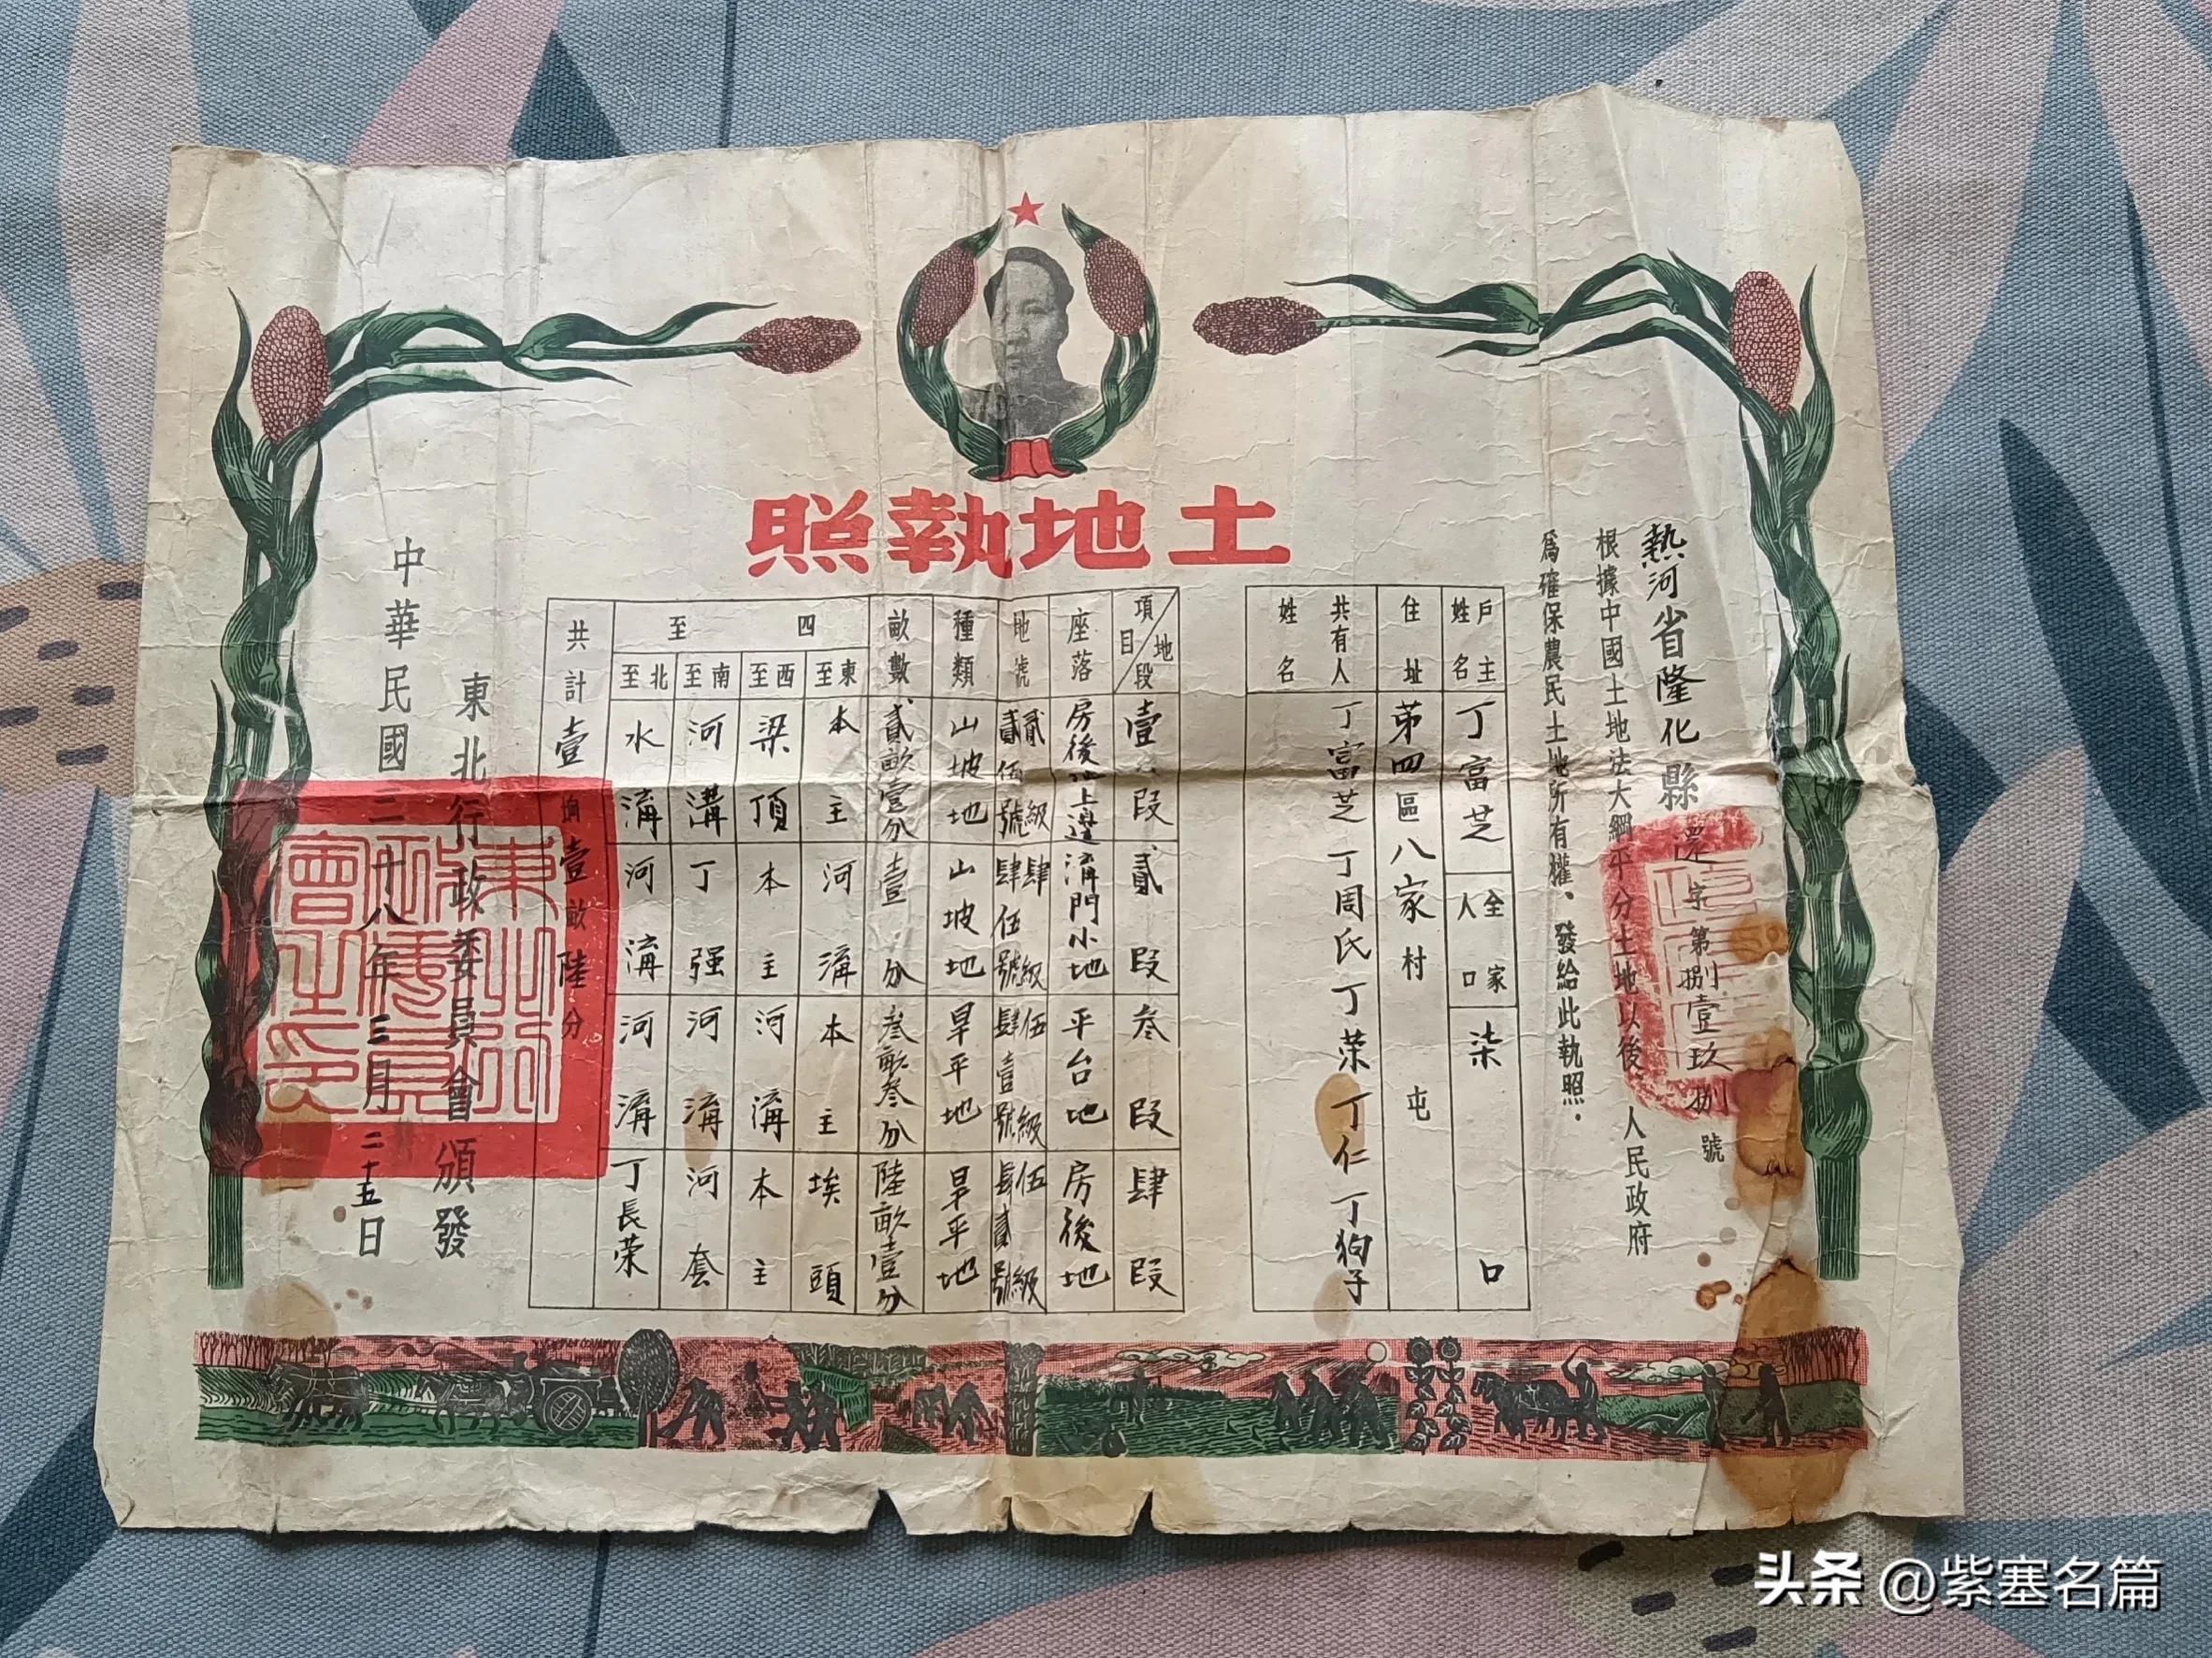 土地執照
熱河省隆化縣
字第捌壹玖捌號
根據中國土地法大綱平分土地以後,人民政府
爲確保農民土地所有權、發給此執照.
戶主姓名 丁富芝 全家人口 柒口
住址 第四區八家村 屯
共有人姓名 丁富芝 丁周氏 丁荣 丁仁 丁狗子
項目 地段 壹段 貳段 叁段 肆段
座落 房後地上邊 溝門小地 平台地 房後地
地號 貳級貳伍號 肆級肆伍號 伍級肆壹號 伍級肆貳號
種類 山坡地 山坡地 旱平地 旱平地
畝數 貳畝壹分 壹分 叁畝叁分 陸畝壹分
四至
東至 本主 河溝 本主 埃頭
西至 梁頂 本主 河溝 本主
南至 河溝 丁强 河溝 河套
北至 水溝 河溝 河溝 丁長荣
共計 壹垧壹畝陸分
東北行政委員會頒發
中華民國三十八年三月二十五日
東北行政委員會之印
头条 @紫塞名篇